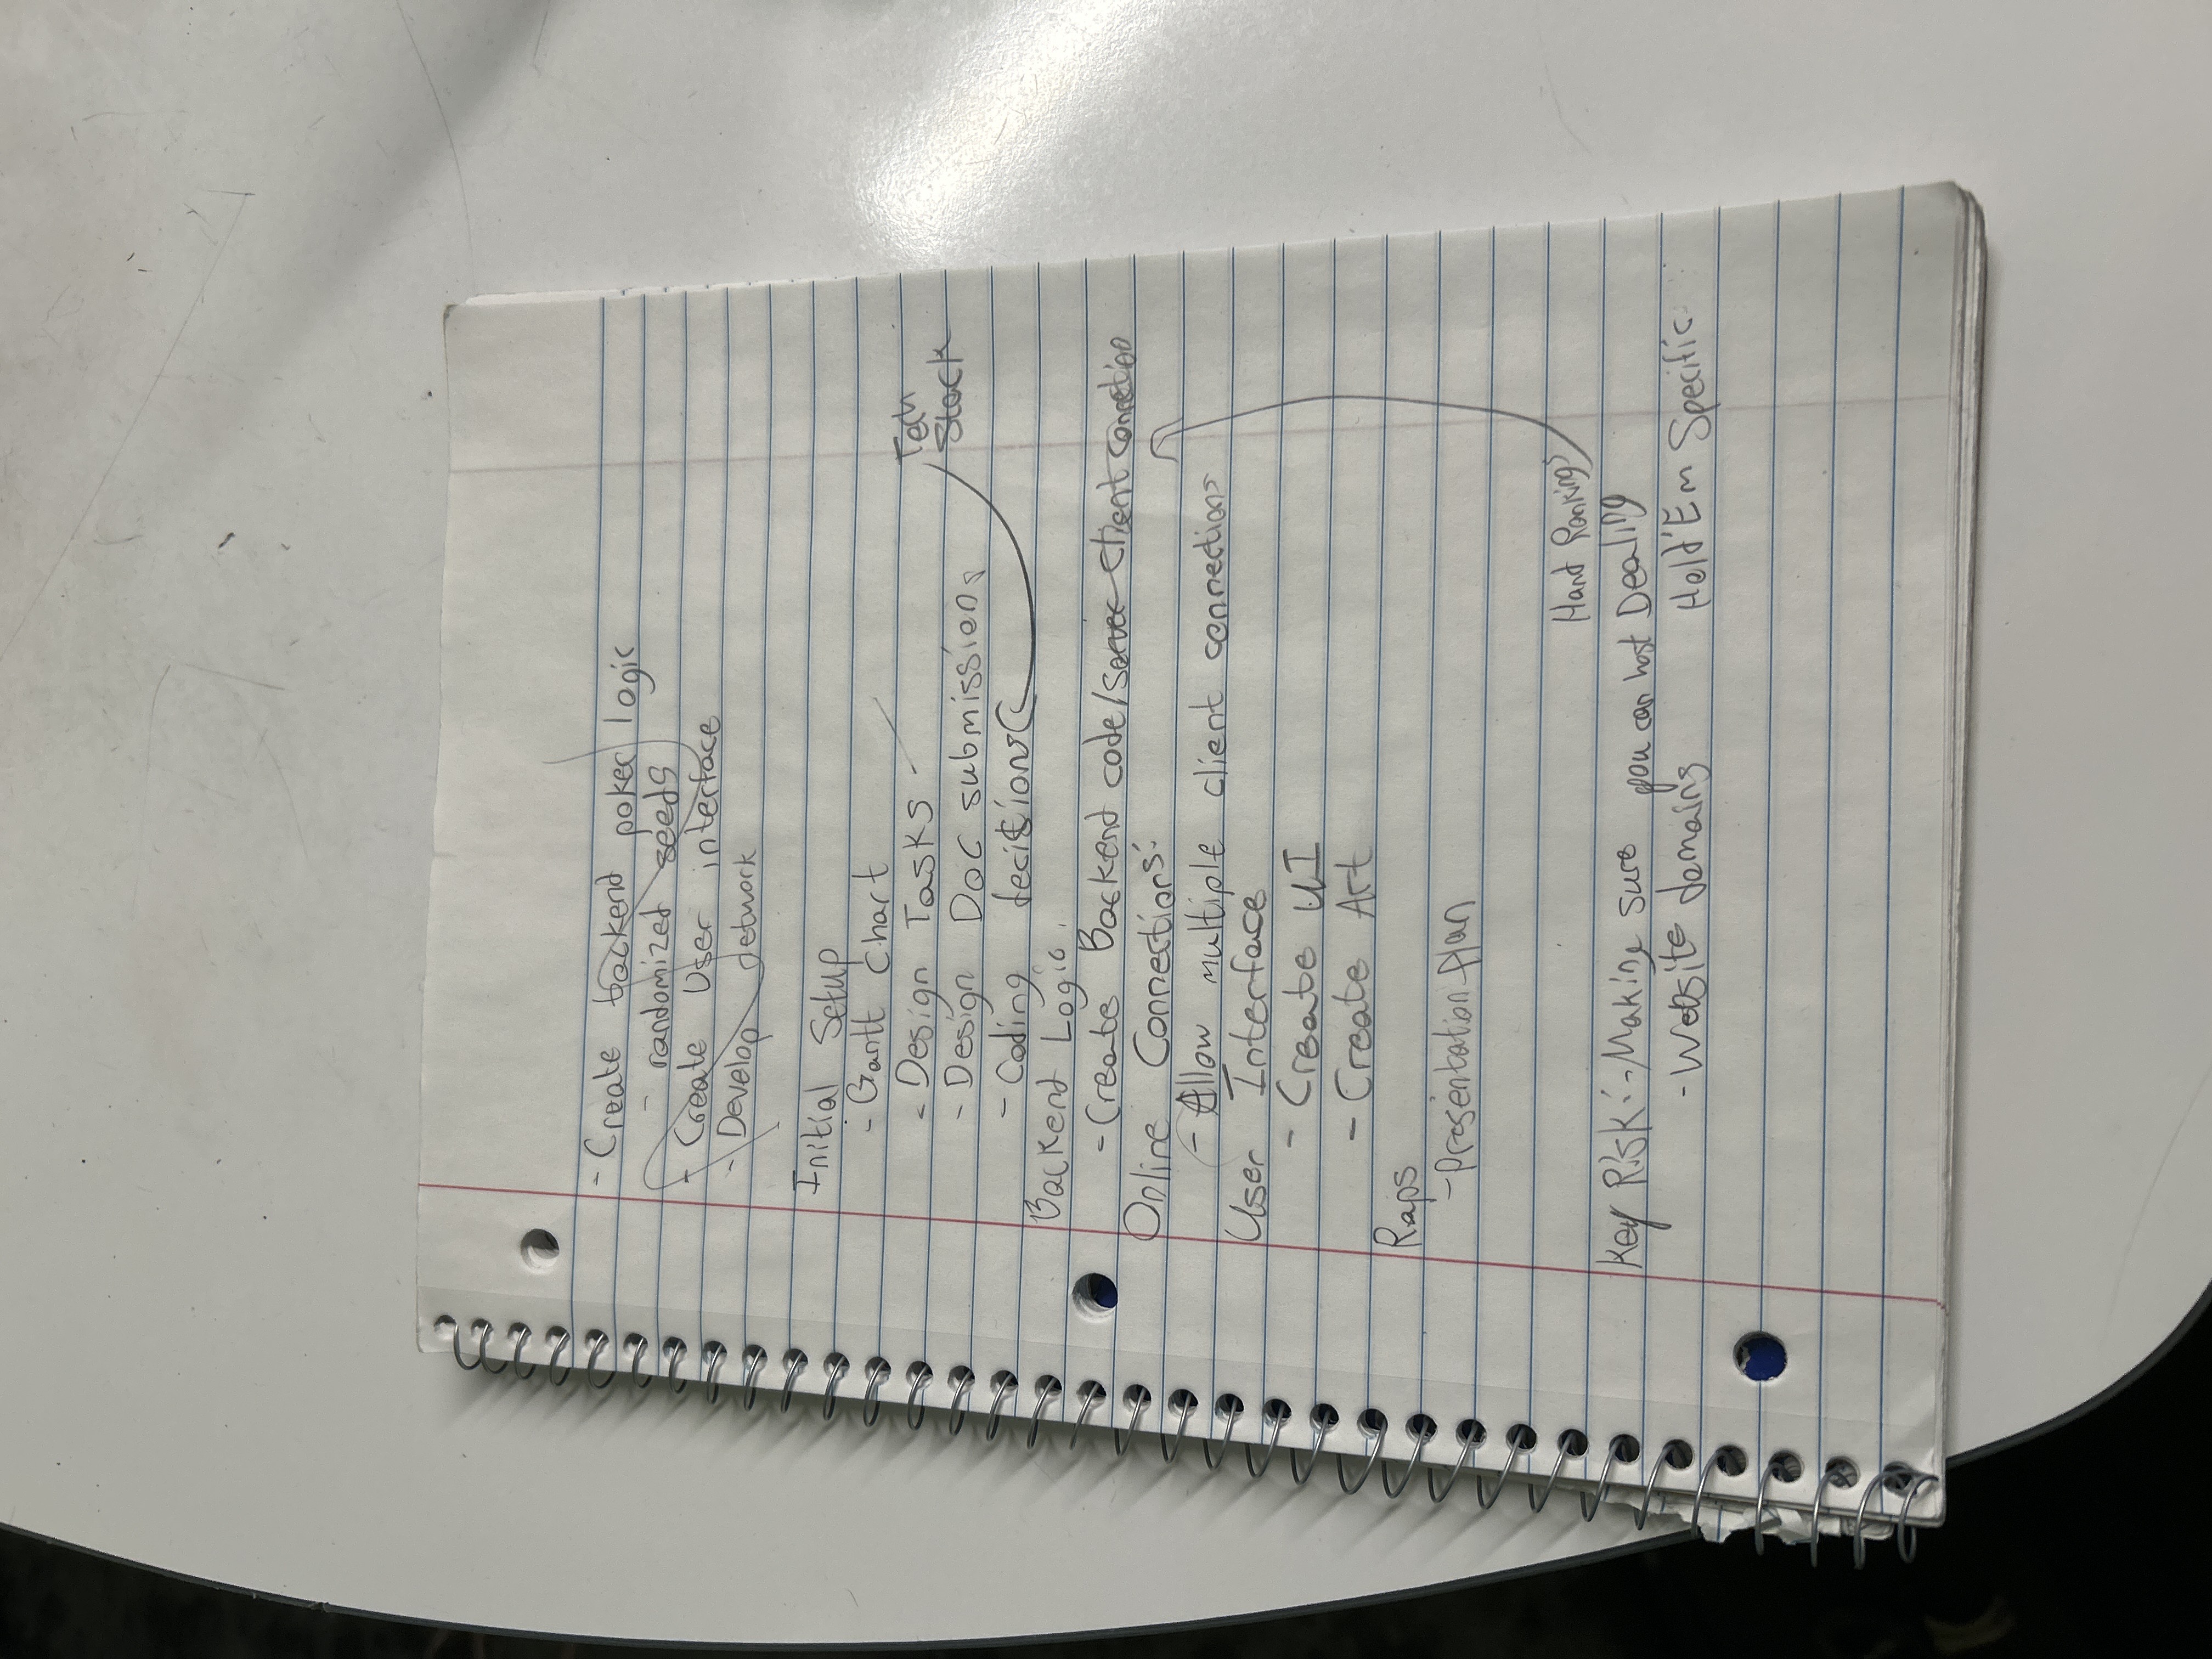 - Create backend poker logic
- randomized seeds
- Create User interface
- Develop network
Initial Setup
- Gantt Chart
- Design Tasks
- Design Doc submissions
- Coding decisions
Tech
Stack
Backend Logic
- Create Backend code/server client connection
Online Connections:
- Allow multiple client connections
User Interface
- Create UI
- Create Art
Raps
- Presentation Plan
Hand Rankings
Key Risk: - Making sure you can host Dealing
- Website domains Hold'Em Specific